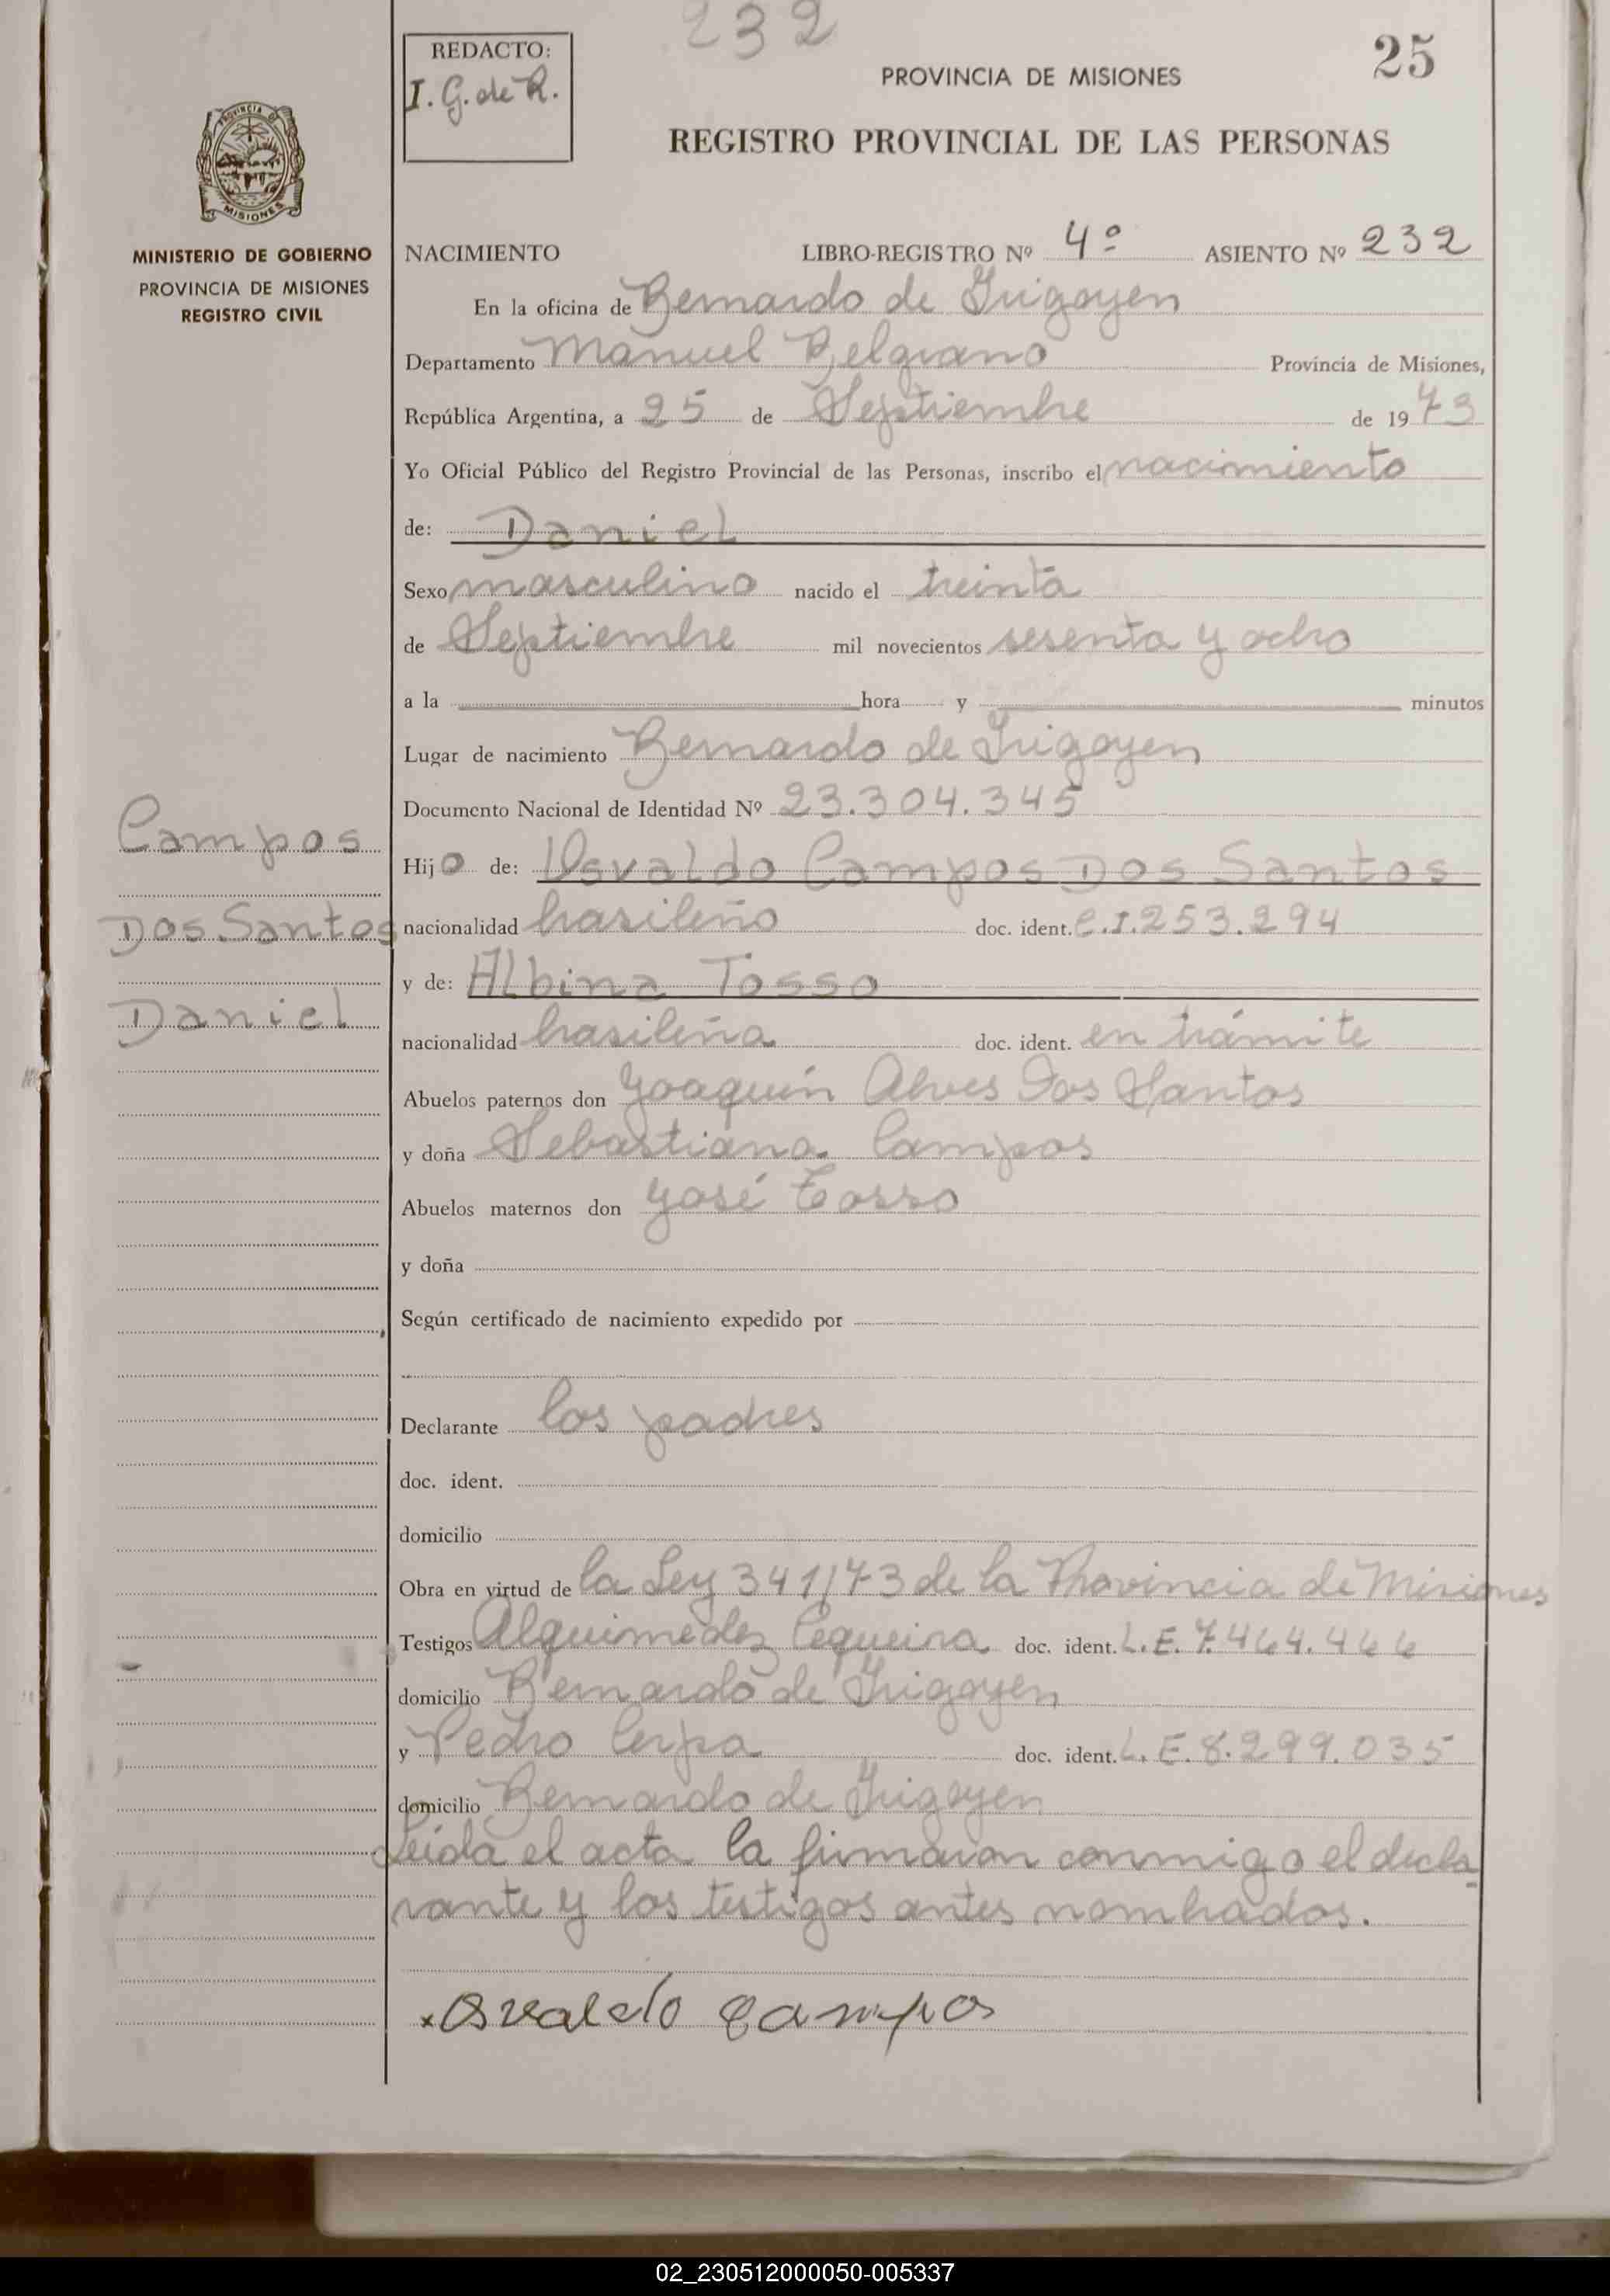 232
REDACTO:
I. G. de R.
25
PROVINCIA DE MISIONES
REGISTRO PROVINCIAL DE LAS PERSONAS
PROVINCIA DE
MISIONES
MINISTERIO DE GOBIERNO
PROVINCIA DE MISIONES
REGISTRO CIVIL
NACIMIENTO LIBRO-REGISTRO Nº 4º ASIENTO Nº 232
En la oficina de Bernardo de Irigoyen
Departamento Manuel Belgrano Provincia de Misiones,
República Argentina, a 25 de Septiembre de 1973
Yo Oficial Público del Registro Provincial de las Personas, inscribo el nacimiento
de: Daniel
Sexo masculino nacido el treinta
de Septiembre mil novecientos sesenta y ocho
a la hora y minutos
Lugar de nacimiento Bernardo de Irigoyen
Documento Nacional de Identidad Nº 23.304.345
Campos
Dos Santos
Daniel
Hijo de: Osvaldo Campos Dos Santos
nacionalidad brasileño doc. ident. C.I.253.294
y de: Albina Tosso
nacionalidad brasileña doc. ident. en trámite
Abuelos paternos don Joaquín Alves Dos Santos
y doña Sebastiana Campos
Abuelos maternos don José Tosso
y doña
Según certificado de nacimiento expedido por
Declarante los padres
doc. ident.
domicilio
Obra en virtud de la Ley 341/73 de la Provincia de Misiones
Testigos Alquimedez Cequeira doc. ident. L.E. 7.464.466
domicilio Bernardo de Irigoyen
y Pedro Cerpa doc. ident. L.E. 8.299.035
domicilio Bernardo de Irigoyen
Leída el acta la firmaron conmigo el decla
rante y los testigos antes nombrados.
x Osvaldo Campos
02_230512000050-005337